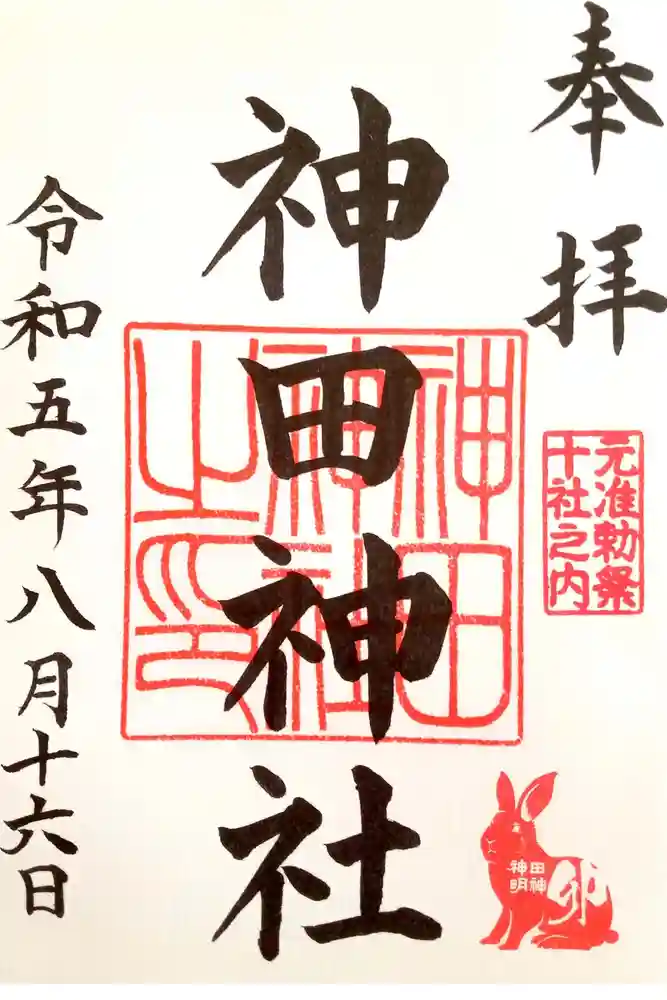 奉拝
元准勅祭
十社之内
神田神社
神田
神社
之印
田神
神明
卯
令和五年八月十六日